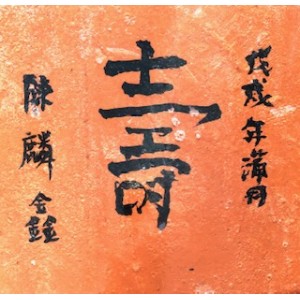 戊戌年蒲月
壽
陳麟